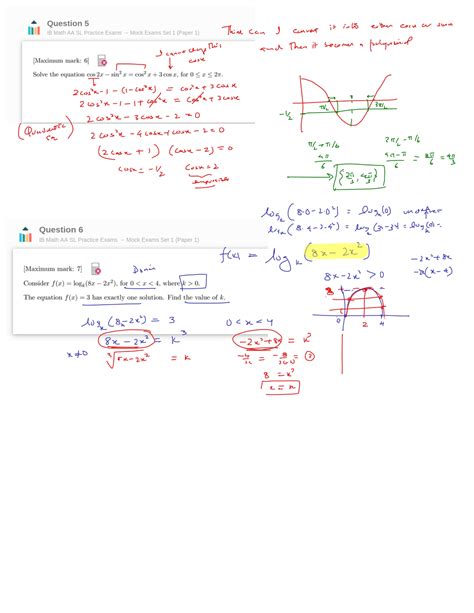 Question 5
IB Math AA SL Practice Exams → Mock Exams Set 1 (Paper 1)
[Maximum mark: 6]
Solve the equation cos 2x − sin² x = cos² x + 3 cos x, for 0 ≤ x ≤ 2π.
I cannot change this
cosx
That can I convert it into either cosx or sinx
and then it becomes a polynomial
2cos²x - 1 - (1-cos²x) = cos²x + 3cosx
2cos²x - 1 - 1 + cos²x = cos²x + 3cosx
(Quadratic
2cos²x - 3cosx - 2 = 0
2cos²x - 4cosx + cosx - 2 = 0
(2cosx + 1) (cosx - 2) = 0
cosx = -1/2 cosx = 2
impossible
-1/2
π/2 + π/6
4π/6
3π/2 - π/6
= 8π/6 = 4π/3
{2π/3, 4π/3}
Question 6
IB Math AA SL Practice Exams → Mock Exams Set 1 (Paper 1)
[Maximum mark: 7]
Domain
Consider f(x) = logₖ(8x − 2x²), for 0 < x < 4, where k > 0.
The equation f(x) = 3 has exactly one solution. Find the value of k.
log₂(8·0-2·0²) = log₂(0) undefined
f(x) = log k (8x - 2x²)
8x - 2x² > 0
-2x² + 8x
-2x(x-4)
8
0 2 4
logₖ(8x-2x²) = 3
0 < x < 4
8x - 2x² = k³
x≠0
³√8x-2x² = k
-2x² + 8x = k³
= ②
8 = k³